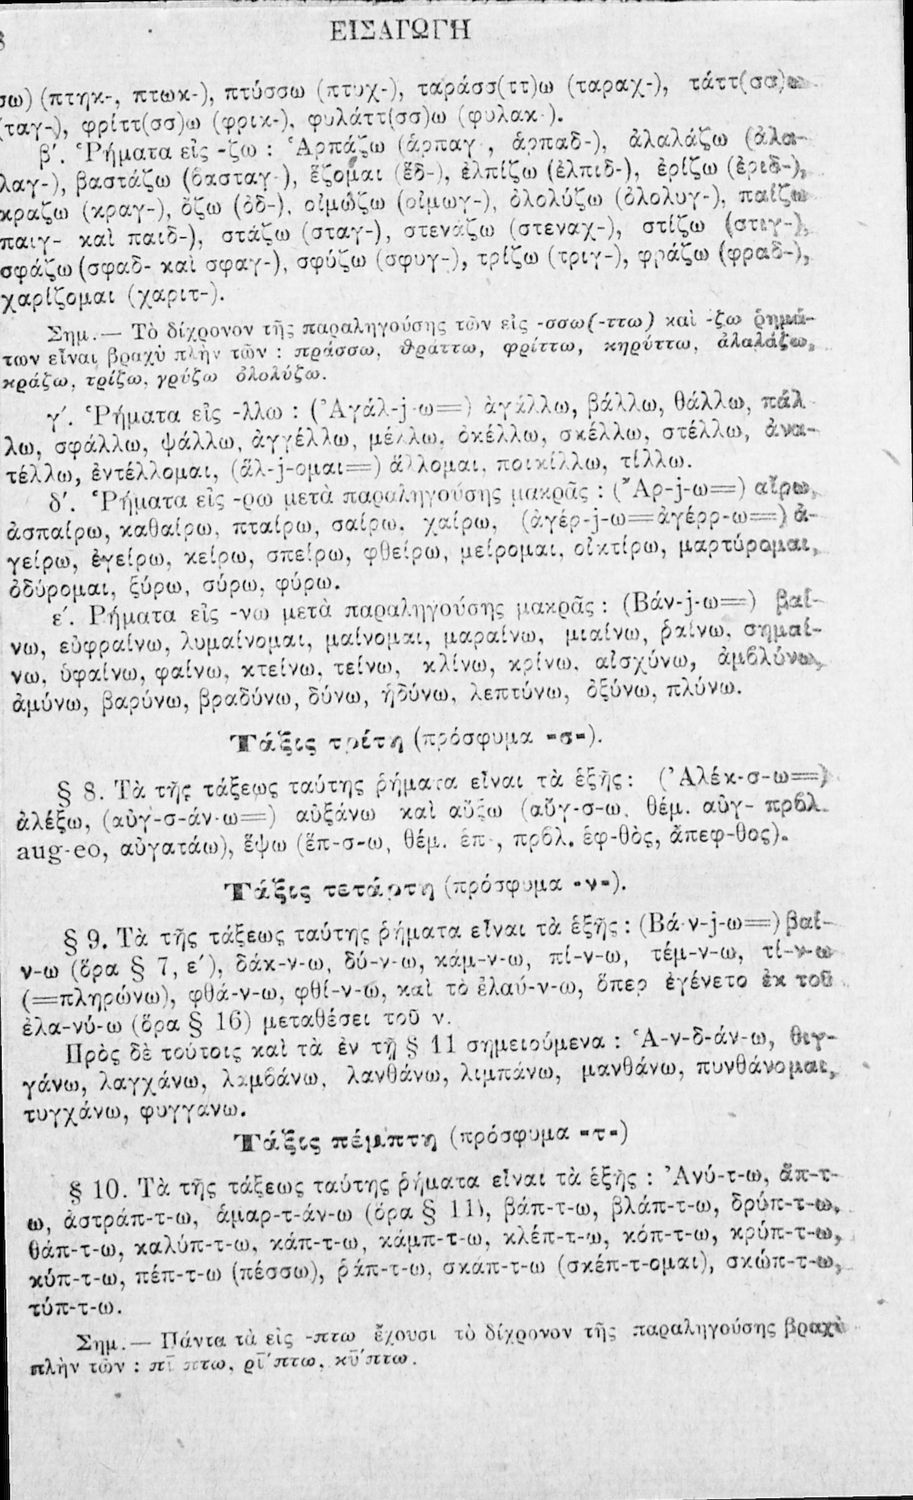 8
ΕΙΣΑΓΩΓΗ
σω) (πτηκ-, πτωκ-), πτύσσω (πτυχ-), ταράσσ(ττ)ω (ταραχ-), τάττ(σσ)ω
(ταγ-), φρίττ(σσ)ω (φρικ-), φυλάττ(σσ)ω (φυλακ-).
β′. Ῥήματα εἰς -ζω : Ἁρπάζω (ἁρπαγ-, ἁρπαδ-), ἀλαλάζω (ἀλα-
λαγ-), βαστάζω (βασταγ-), ἕζομαι (ἕδ-), ἐλπίζω (ἐλπιδ-), ἐρίζω (ἐριδ-),
κραζω (κραγ-), ὄζω (ὀδ-), οἰμώζω (οἰμωγ-), ὀλολύζω (ὀλολυγ-), παίζω
παιγ- καὶ παιδ-), στάζω (σταγ-), στενάζω (στεναχ-), στίζω (στιγ-),
σφάζω (σφαδ- καὶ σφαγ-), σφύζω (σφυγ-), τρίζω (τριγ-), φράζω (φραδ-),
χαρίζομαι (χαριτ-).
Σημ.— Τὸ δίχρονον τῆς παραληγούσης τῶν εἰς -σσω(-ττω) καὶ -ζω ῥημά-
των εἶναι βραχὺ πλὴν τῶν : πράσσω, θράττω, φρίττω, κηρύττω, ἀλαλάζω,
κράζω, τρίζω, γρύζω ὀλολύζω.
γ′. Ῥήματα εἰς -λλω : (Ἀγάλ-j-ω=) ἀγάλλω, βάλλω, θάλλω, πάλ
λω, σφάλλω, ψάλλω, ἀγγέλλω, μέλλω, ὀκέλλω, σκέλλω, στέλλω, ἀνα-
τέλλω, ἐντέλλομαι, (ἅλ-j-ομαι=) ἅλλομαι, ποικίλλω, τίλλω.
δ′. Ῥήματα εἰς -ρω μετὰ παραληγούσης μακρᾶς : (Ἄρ-j-ω=) αἴρω,
ἀσπαίρω, καθαίρω, πταίρω, σαίρω, χαίρω, (ἀγέρ-j-ω=ἀγέρρ-ω=) ἀ-
γείρω, ἐγείρω, κείρω, σπείρω, φθείρω, μείρομαι, οἰκτίρω, μαρτύρομαι,
ὀδύρομαι, ξύρω, σύρω, φύρω.
ε′. Ρήματα εἰς -νω μετὰ παραληγούσης μακρᾶς : (Βάν-j-ω=) βαί-
νω, εὐφραίνω, λυμαίνομαι, μαίνομαι, μαραίνω, μιαίνω, ῥαίνω, σημαί-
νω, ὑφαίνω, φαίνω, κτείνω, τείνω, κλίνω, κρίνω, αἰσχύνω, ἀμβλύνω,
ἀμύνω, βαρύνω, βραδύνω, δύνω, ἡδύνω, λεπτύνω, ὀξύνω, πλύνω.
Τάξις τρίτη (πρόσφυμα -σ-).
§ 8. Τὰ τῆς τάξεως ταύτης ῥήματα εἶναι τὰ ἑξῆς : (Ἀλέκ-σ-ω=)
ἀλέξω, (αὐγ-σ-άν-ω=) αὐξάνω καὶ αὔξω (αὔγ-σ-ω, θέμ. αὐγ- πρβλ.
aug-eo, αὐγατάω), ἕψω (ἕπ-σ-ω, θέμ. ἑπ-, πρβλ. ἑφ-θὸς, ἄπεφ-θος).
Τάξις τετάρτη (πρόσφυμα -ν-).
§ 9. Τὰ τῆς τάξεως ταύτης ῥήματα εἶναι τὰ ἑξῆς : (Βά-ν-j-ω=) βαί-
ν-ω (ὅρα § 7, ε′), δάκ-ν-ω, δύ-ν-ω, κάμ-ν-ω, πί-ν-ω, τέμ-ν-ω, τί-ν-ω
(=πληρώνω), φθά-ν-ω, φθί-ν-ω, καὶ τὸ ἐλαύ-ν-ω, ὅπερ ἐγένετο ἐκ τοῦ
ἐλα-νύ-ω (ὅρα § 16) μεταθέσει τοῦ ν.
Πρὸς δὲ τούτοις καὶ τὰ ἐν τῇ § 11 σημειούμενα : Ἁ-ν-δ-άν-ω, θιγ-
γάνω, λαγχάνω, λαμβάνω, λανθάνω, λιμπάνω, μανθάνω, πυνθάνομαι,
τυγχάνω, φυγγανω.
Τάξις πέμπτη (πρόσφυμα -τ-)
§ 10. Τὰ τῆς τάξεως ταύτης ῥήματα εἶναι τὰ ἑξῆς : Ἀνύ-τ-ω, ἅπ-τ-
ω, ἀστράπ-τ-ω, ἁμαρ-τ-άν-ω (ὅρα § 11), βάπ-τ-ω, βλάπ-τ-ω, δρύπ-τ-ω,
θάπ-τ-ω, καλύπ-τ-ω, κάπ-τ-ω, κάμπ-τ-ω, κλέπ-τ-ω, κόπ-τ-ω, κρύπ-τ-ω,
κύπ-τ-ω, πέπ-τ-ω (πέσσω), ῥάπ-τ-ω, σκάπ-τ-ω (σκέπ-τ-ομαι), σκώπ-τ-ω,
τύπ-τ-ω.
Σημ.— Πάντα τὰ εἰς -πτω ἔχουσι τὸ δίχρονον τῆς παραληγούσης βραχὺ
πλὴν τῶν : πῑ́πτω, ρῑ́πτω, κῡ́πτω.